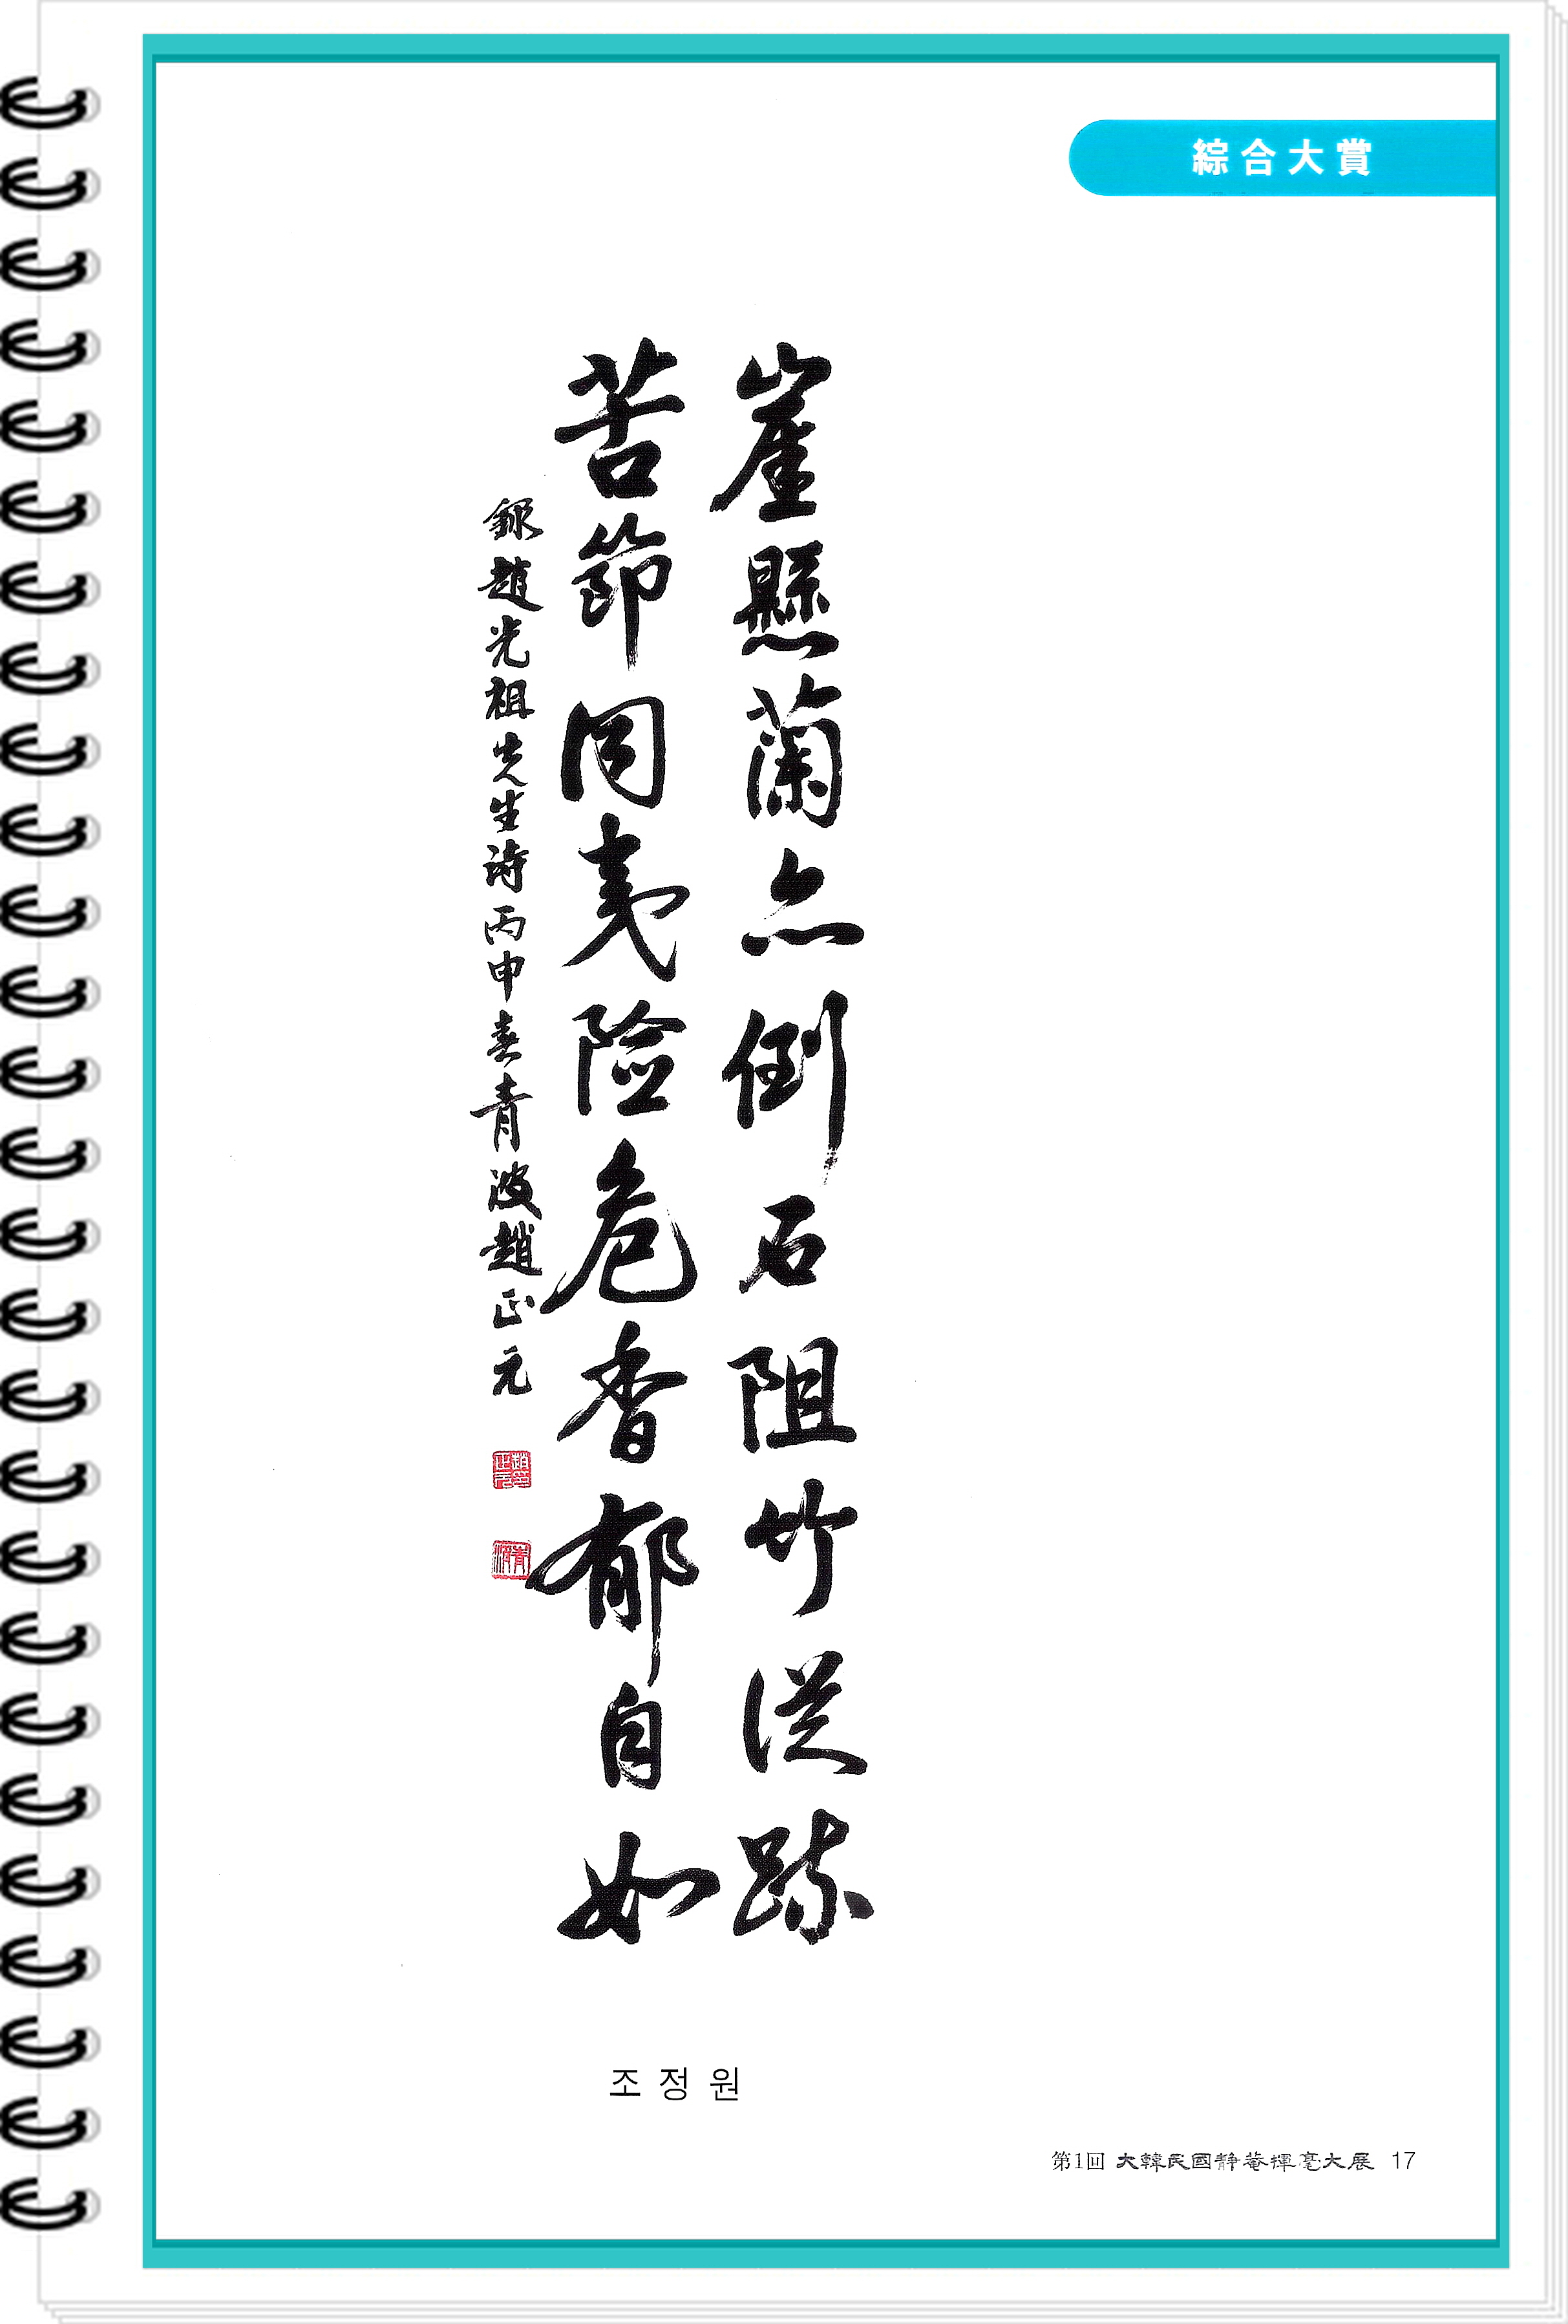 綜合大賞
崖懸蘭亦倒石阻竹從疎
苦節同夷險危香郁自如
錄趙光祖先生詩丙申春青波趙正元
趙正元印
青波
조정원
第1回 大韓民國靜菴揮毫大展 17